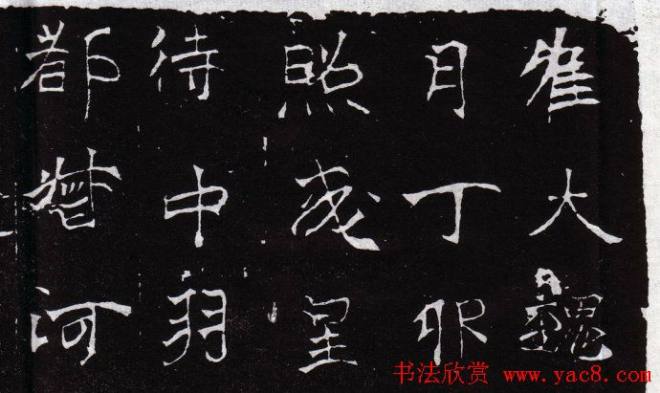 惟大魏
月丁卯
照成皇
侍中羽
都督河
书法欣赏 www.yac8.com